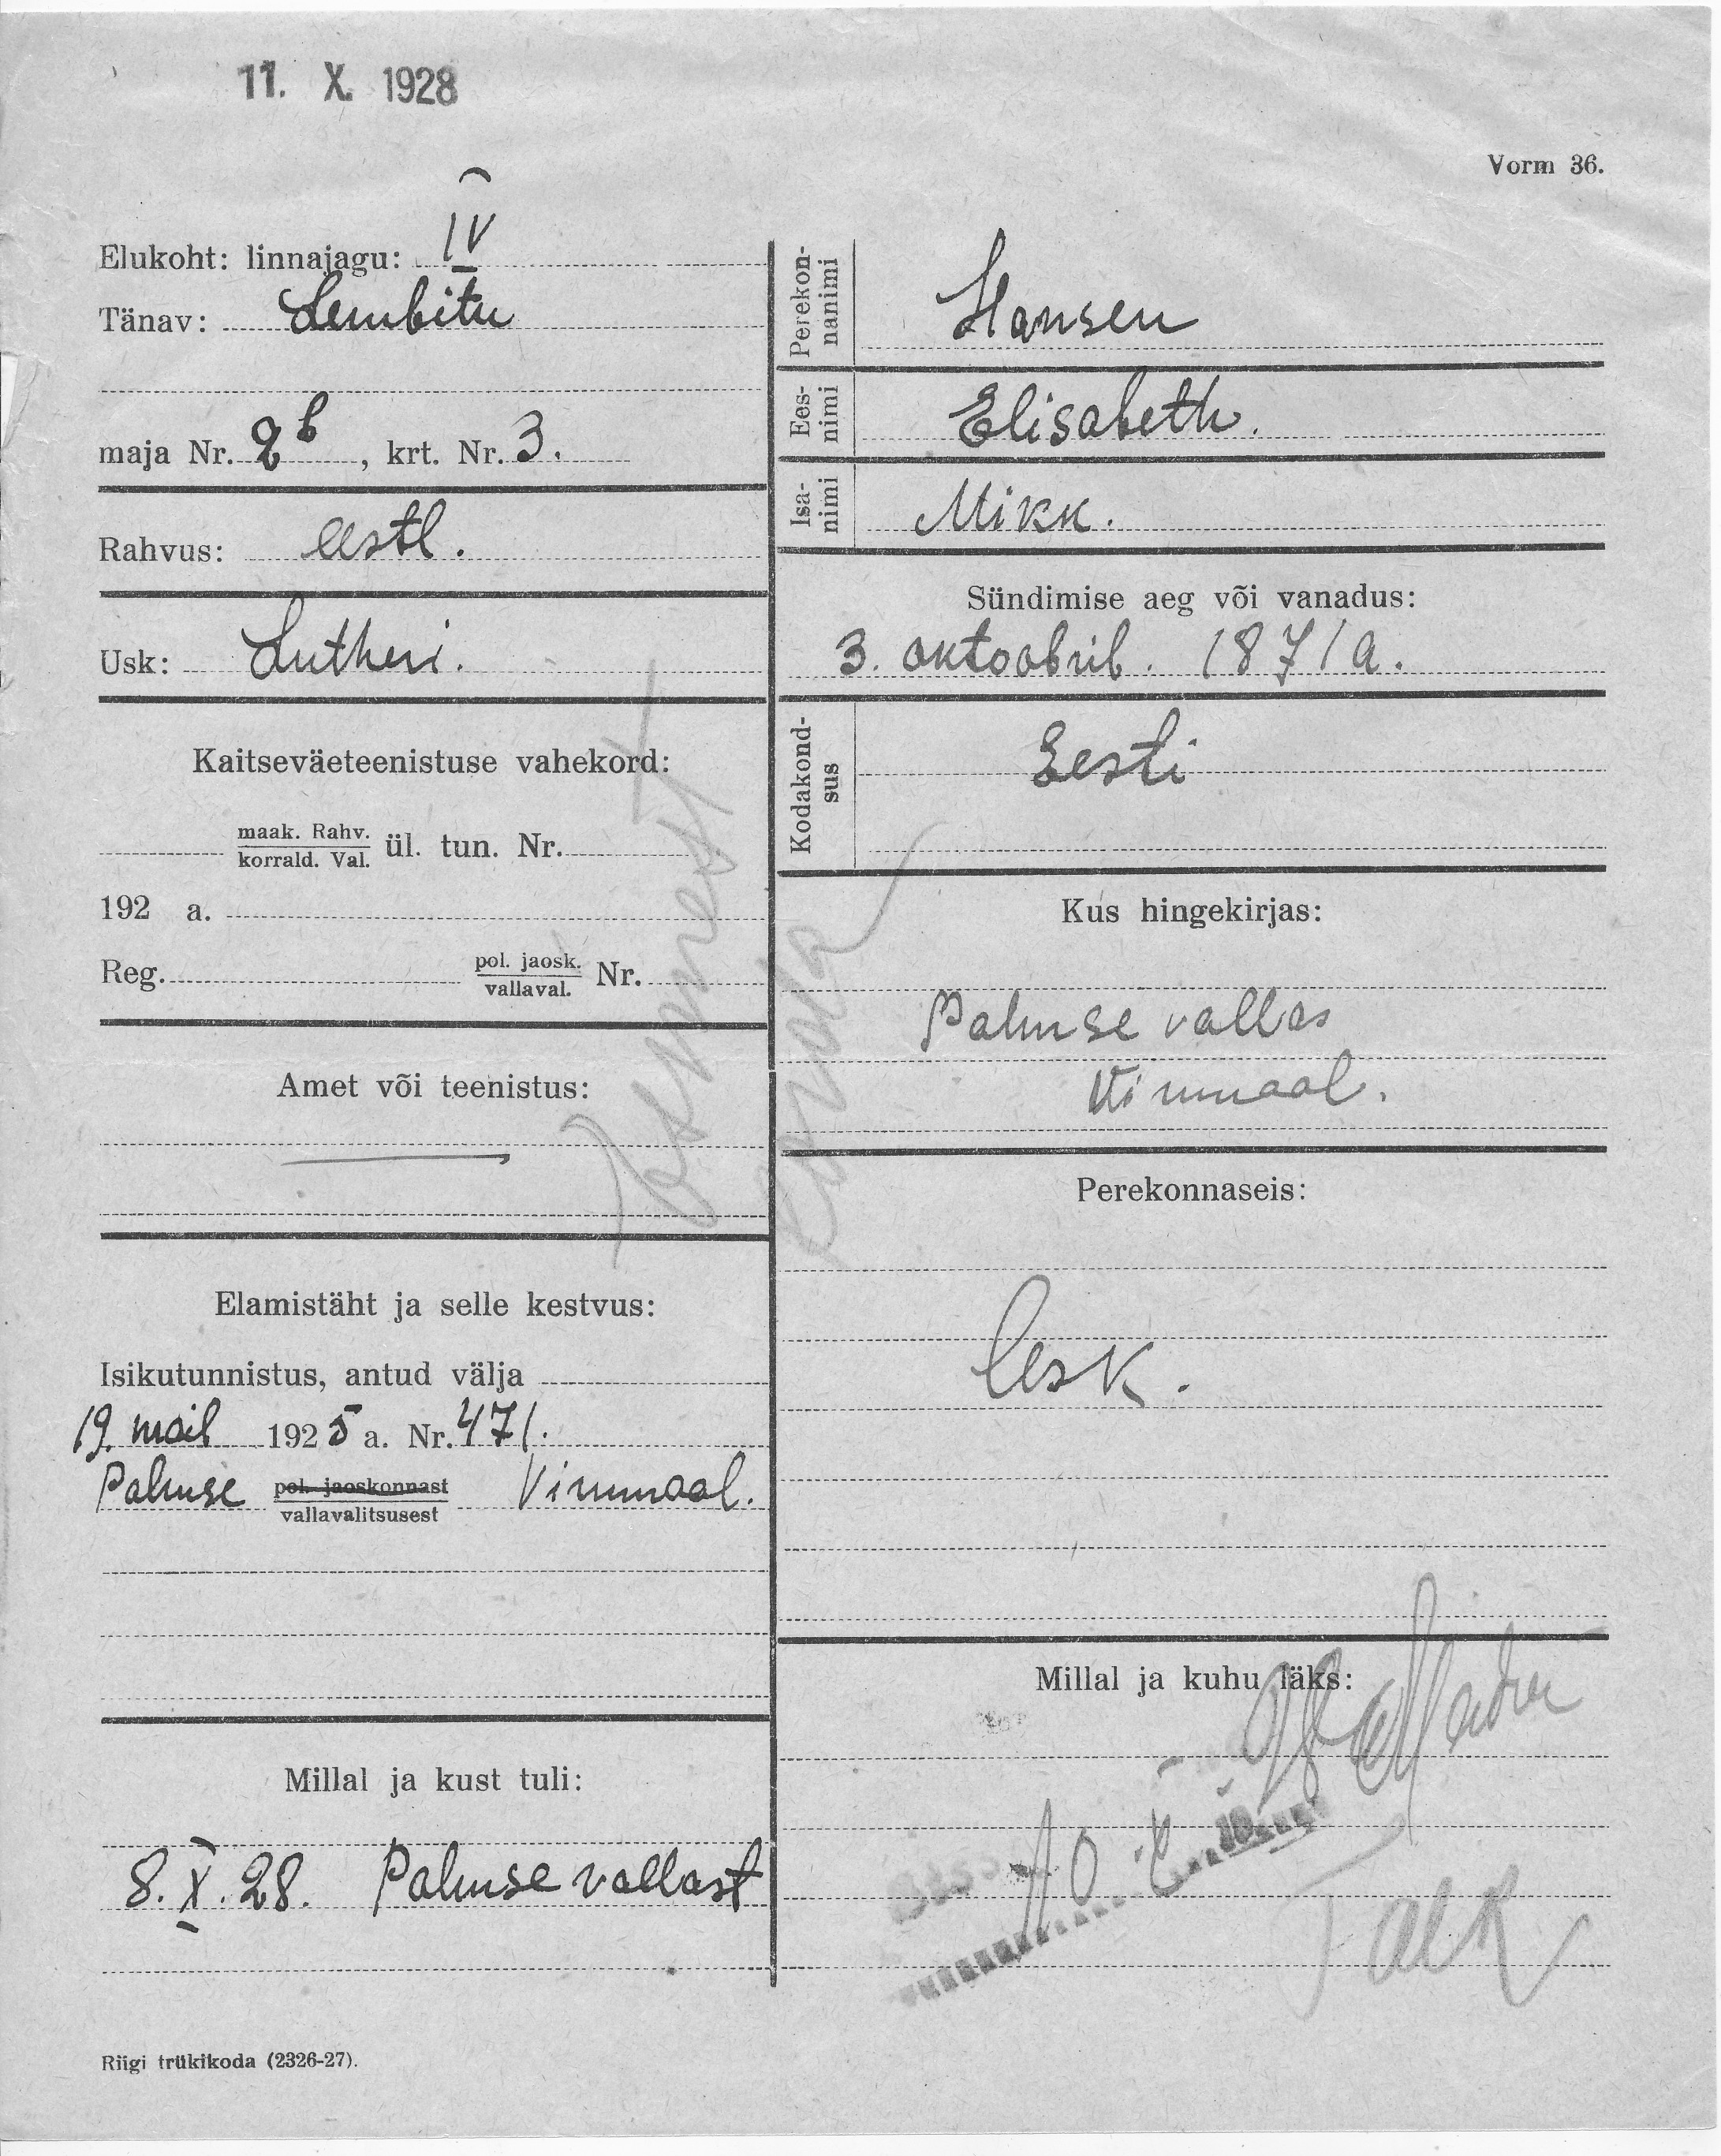 11. X. 1928
Vorm 36.
Elukoht: linnajagu: IV
Tänav: Lembitu
maja Nr. 2b, krt. Nr. 3.
Rahvus: eestl.
Usk: Lutheri.
Kaitseväeteenistuse vahekord:
maak. Rahv.
korrald. Val. ül. tun. Nr.
192 a.
Reg. pol. jaosk.
vallaval. Nr.
Amet või teenistus:
Elamistäht ja selle kestvus:
Isikutunnistus, antud välja
19. mail 1925 a. Nr. 471.
Palmse pol. jaoskonnast
vallavalitsusest Virumaal.
Millal ja kust tuli:
8. X. 28. Palmse vallast
Riigi trükikoda (2326-27).
Perekon-
nanimi
Hansen
Ees-
nimi
Elisabeth.
Isa-
nimi
Mikk.
Sündimise aeg või vanadus:
3. oktoobril. 1871 a.
Kodakond-
sus
Eesti
Kus hingekirjas:
Palmse vallas
Virumaal.
Perekonnaseis:
lesk.
Millal ja kuhu läks: